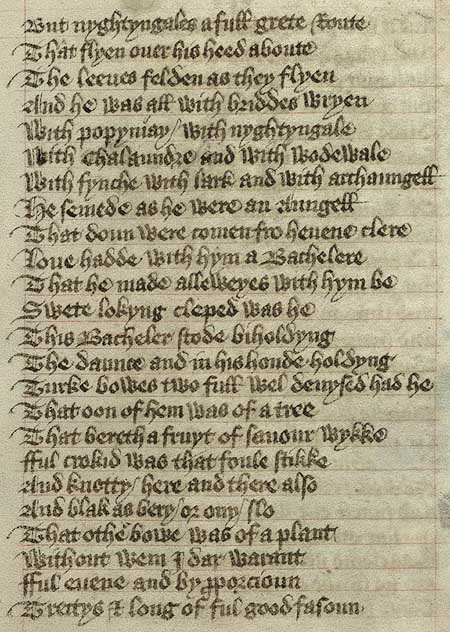 But nyghtyngales a full grete Route
That flyen ouer his heed aboute
The leeues felden as they flyen
And he was all with briddes wryen
With popyniay / with nyghtyngale
With Chalaundre and with wodewale
With fynche with lark and with archaungell
He semede as he were an Aungell
That doun were comen fro heuene clere
Loue hadde with hym a Bachelere
That he made alleweyes with hym be
Swete lokyng cleped was he
This Bacheler stode biholdyng
The daunce and in his honde holdyng
Turke bowes two full wel deuysed had he
That oon of hem was of a tree
That bereth a fruyt of sauour wykke
fful crokid was that foule stikke
And knotty / here and there also
And blak as bery / or ony / slo
That othe bowe was of a plant
Without wem I dar warant
fful euene and by proporcioun
Trettys & long of ful good fasoun